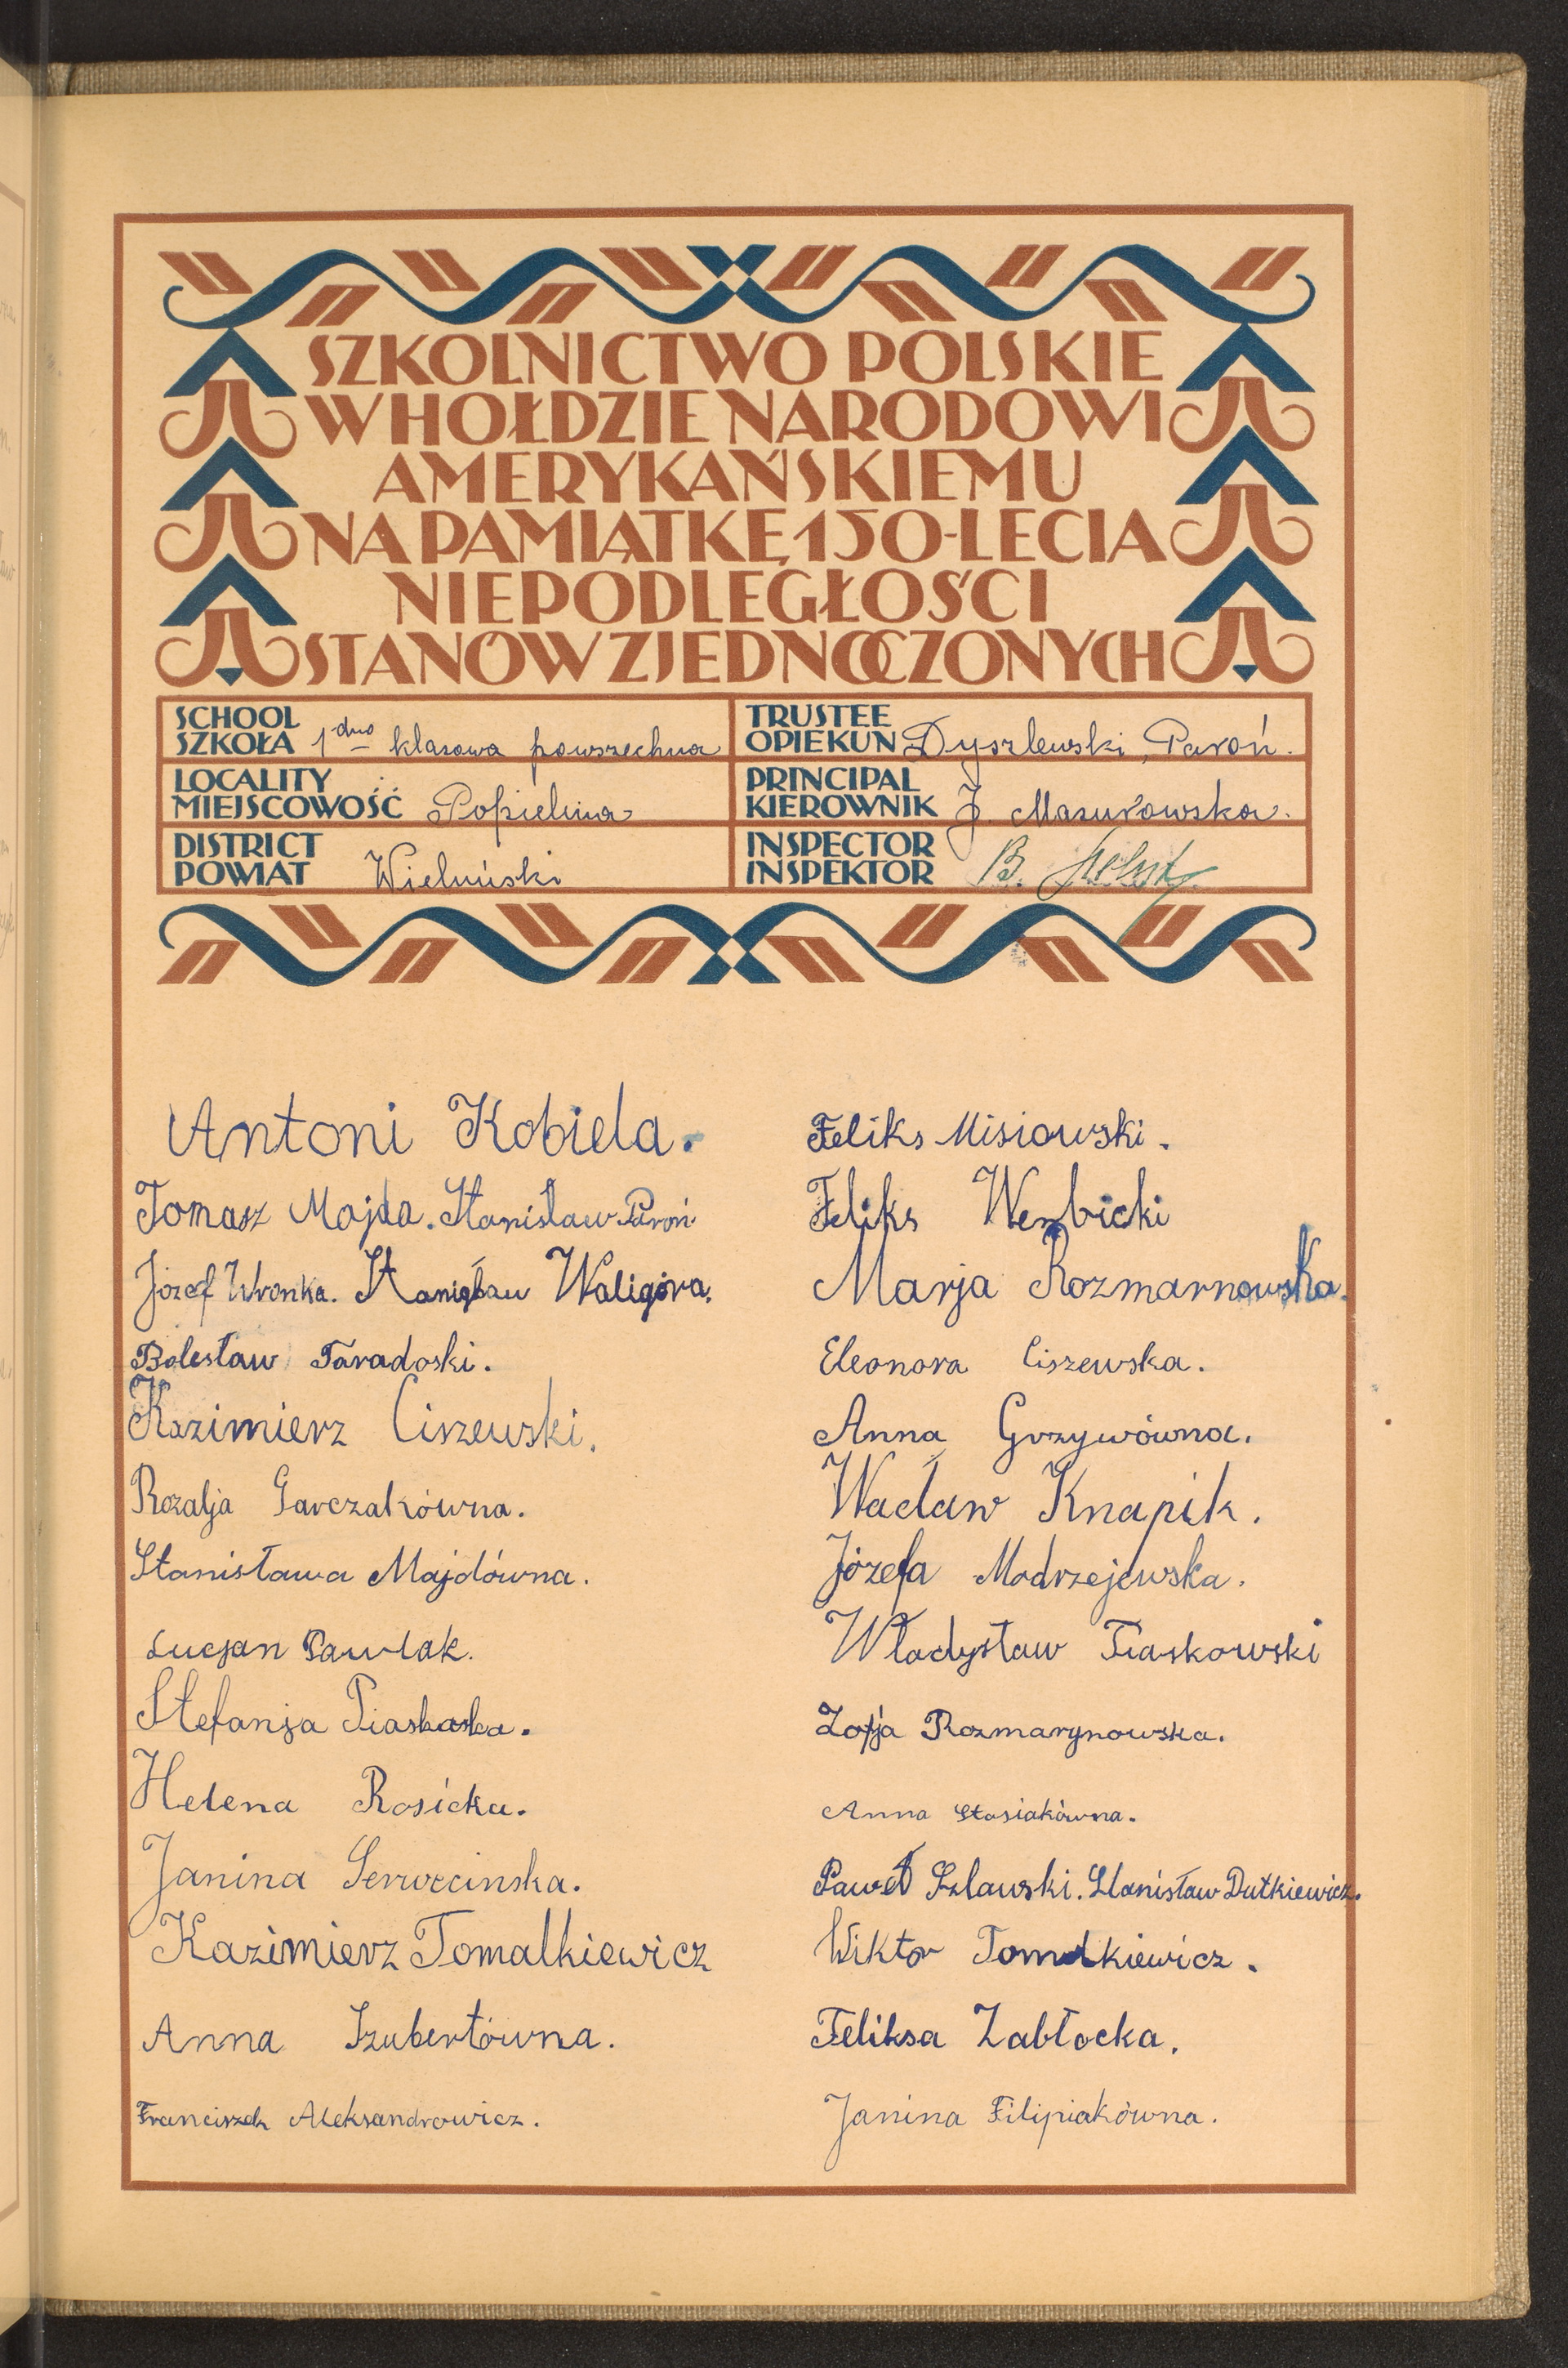 SZKOLNICTWO POLSKIE
W HOŁDZIE NARODOWI
AMERYKAŃSKIEMU
NA PAMIĄTKĘ 150-LECIA
NIEPODLEGŁOŚCI
STANÓW ZJEDNOCZONYCH
SCHOOL
SZKOŁA 1dno klasowa powszechna
TRUSTEE
OPIEKUN Dyszlewski, Paroń.
LOCALITY
MIEJSCOWOŚĆ Popielina
PRINCIPAL
KIEROWNIK J. Mazurowska.
DISTRICT
POWIAT Wieluński
INSPECTOR
INSPEKTOR B.
Antoni Kobiela.
Tomasz Majda. Stanisław Paroń
Józef Wronka. Stanisław Waligóra.
Bolesław Taradoski.
Kazimierz Ciszewski.
Rozalja Garczakówna.
Stanisława Majdówna.
Lucjan Pawlak.
Stefanja Piaskaska.
Helena Rosicka.
Janina
Kazimierz Tomalkiewicz
Anna Szubertówna.
Franciszek Aleksandrowicz.
Feliks Misiowski.
Feliks Werbicki
Marja Rozmarnowska.
Eleonora Ciszewska.
Anna Grzywówna.
Wacław Knapik.
Józefa Modrzejewska.
Władysław Piaskowski
Zofja Rozmarynowska.
Anna Stasiakówna.
Paweł Szlawski. Stanisław Dutkiewicz.
Wiktor Tomalkiewicz.
Feliksa Zabłocka.
Janina Filipiakówna.